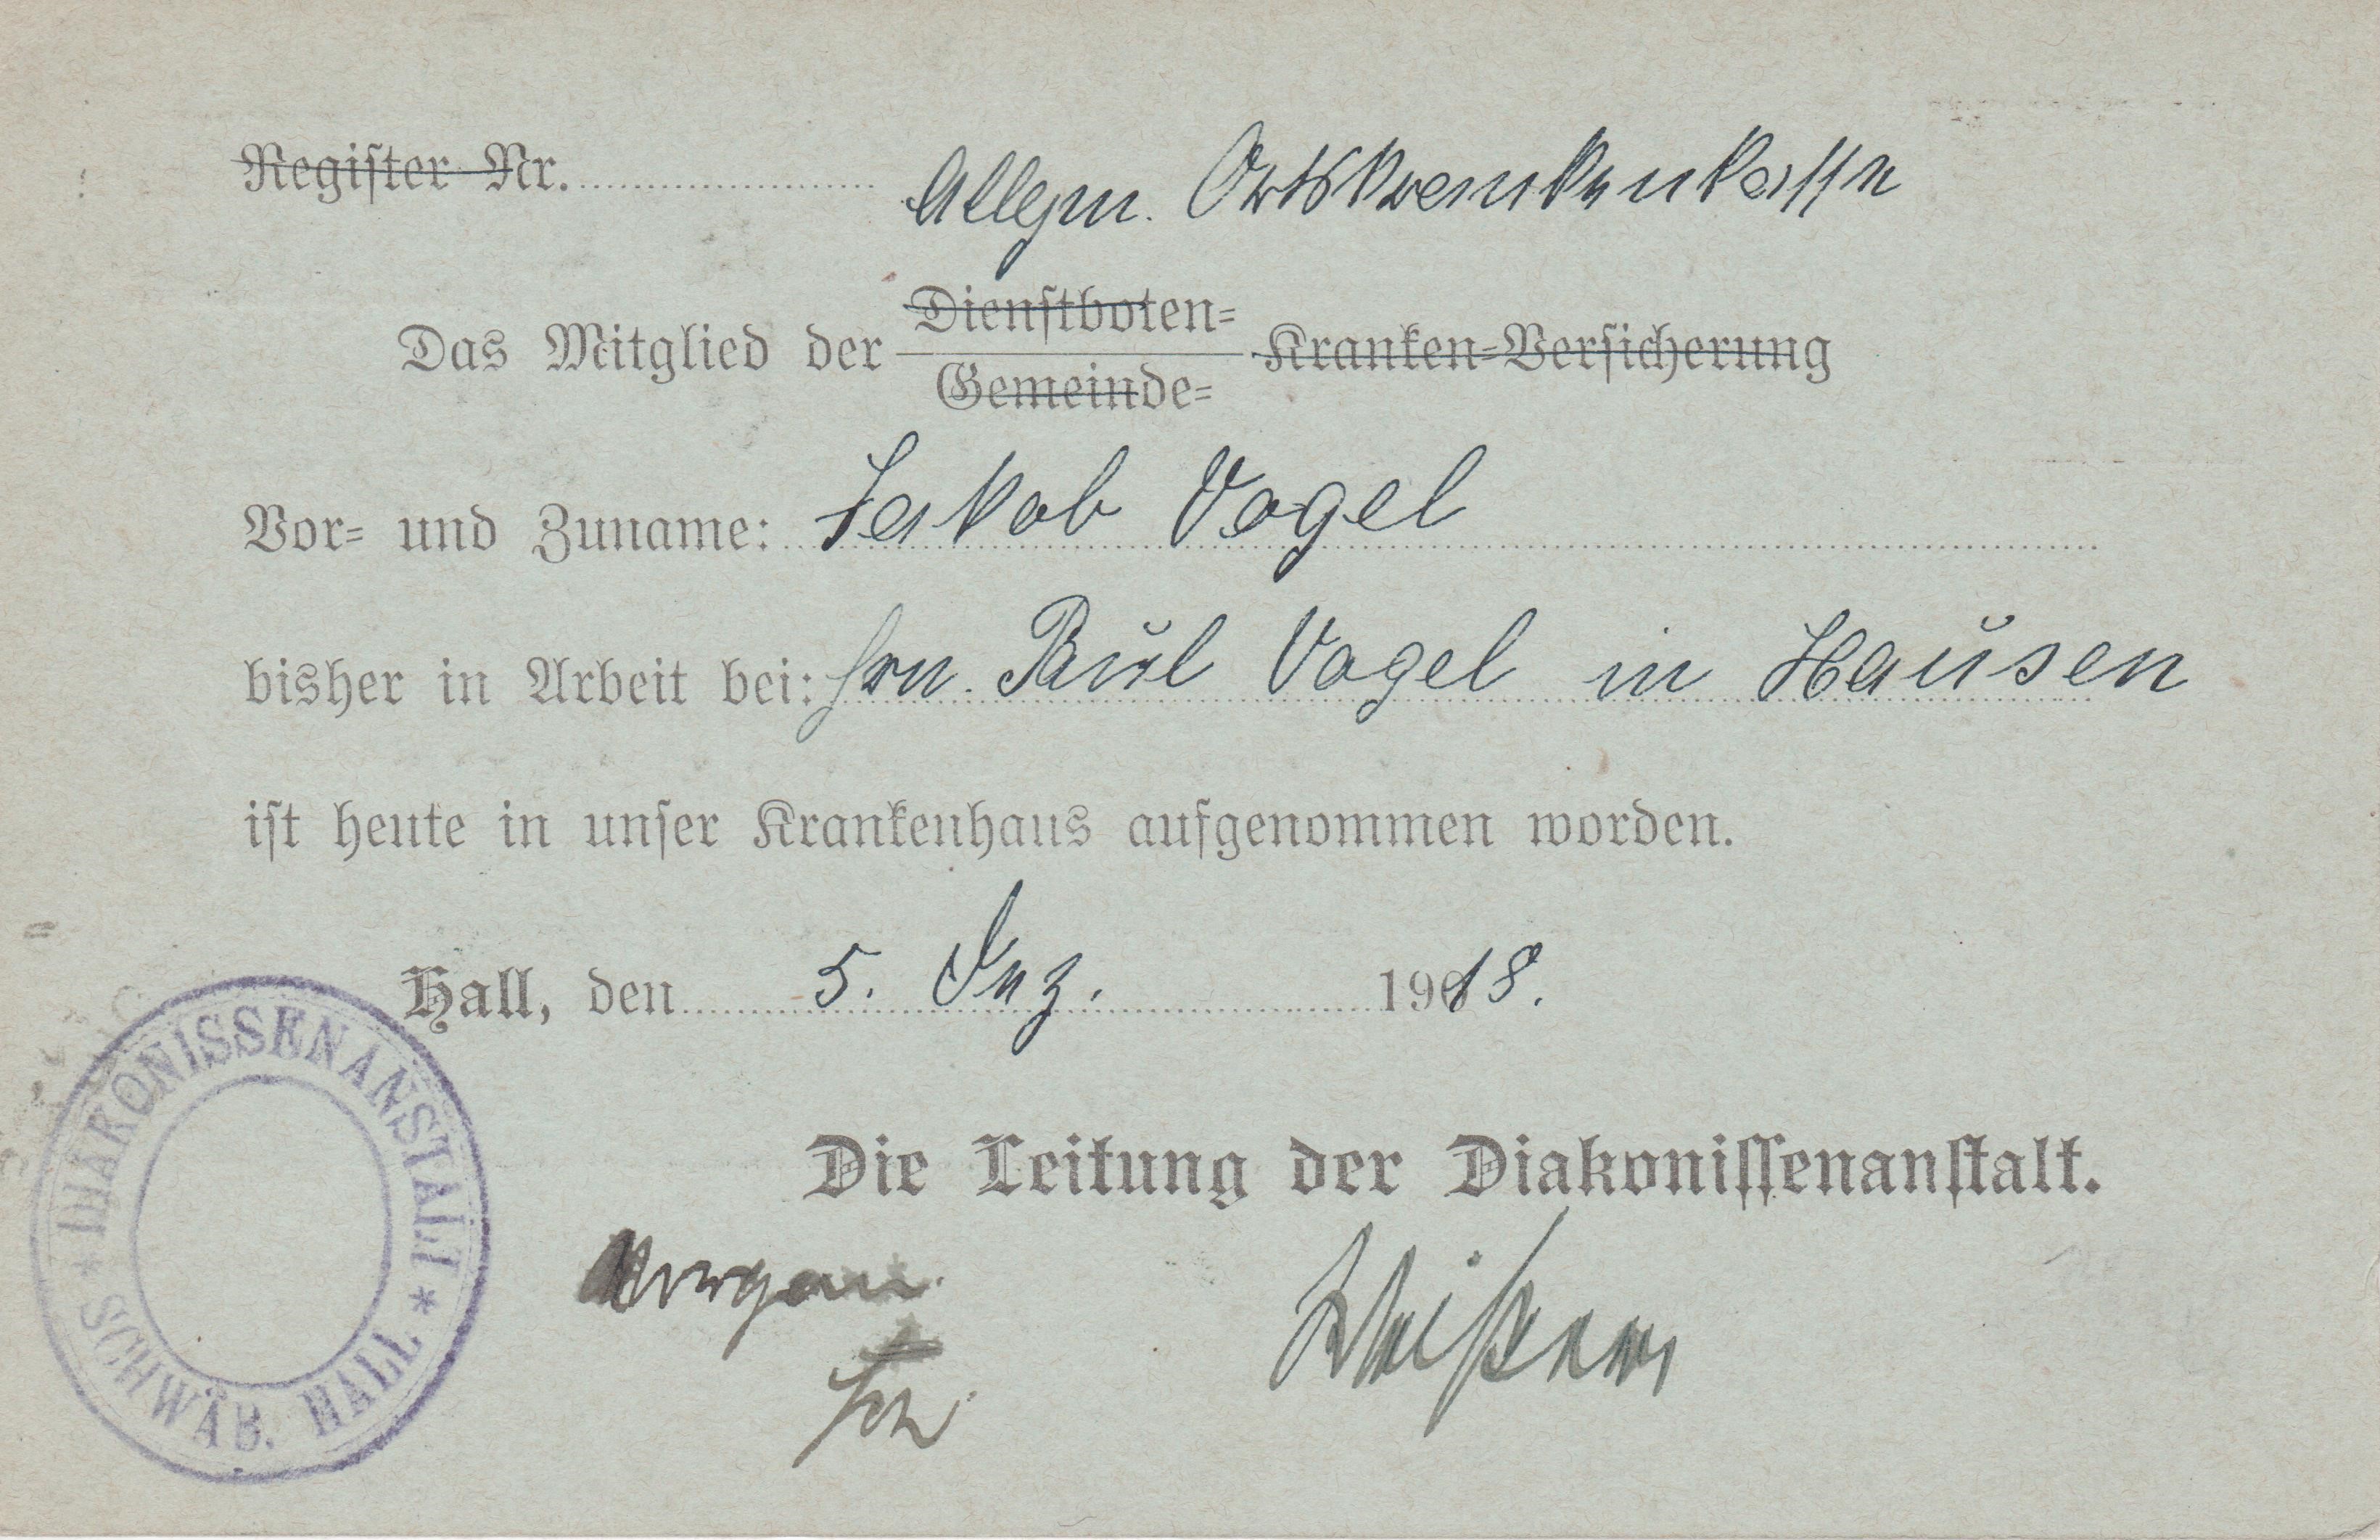 Register Nr.
Allgem. Ortskrankenkasse
Das Mitglied der Dienstboten= Kranken=Versicherung
Gemeinde=
Vor= und Zuname: Jakob Vogel
bisher in Arbeit bei: Hrn. Paul Vogel in Hausen
ist heute in unser Krankenhaus aufgenommen worden.
Hall, den 5. Dez. 1918.
Die Leitung der Diakonissenanstalt.
DIAKONISSENANSTALT
* SCHWÄB. HALL *